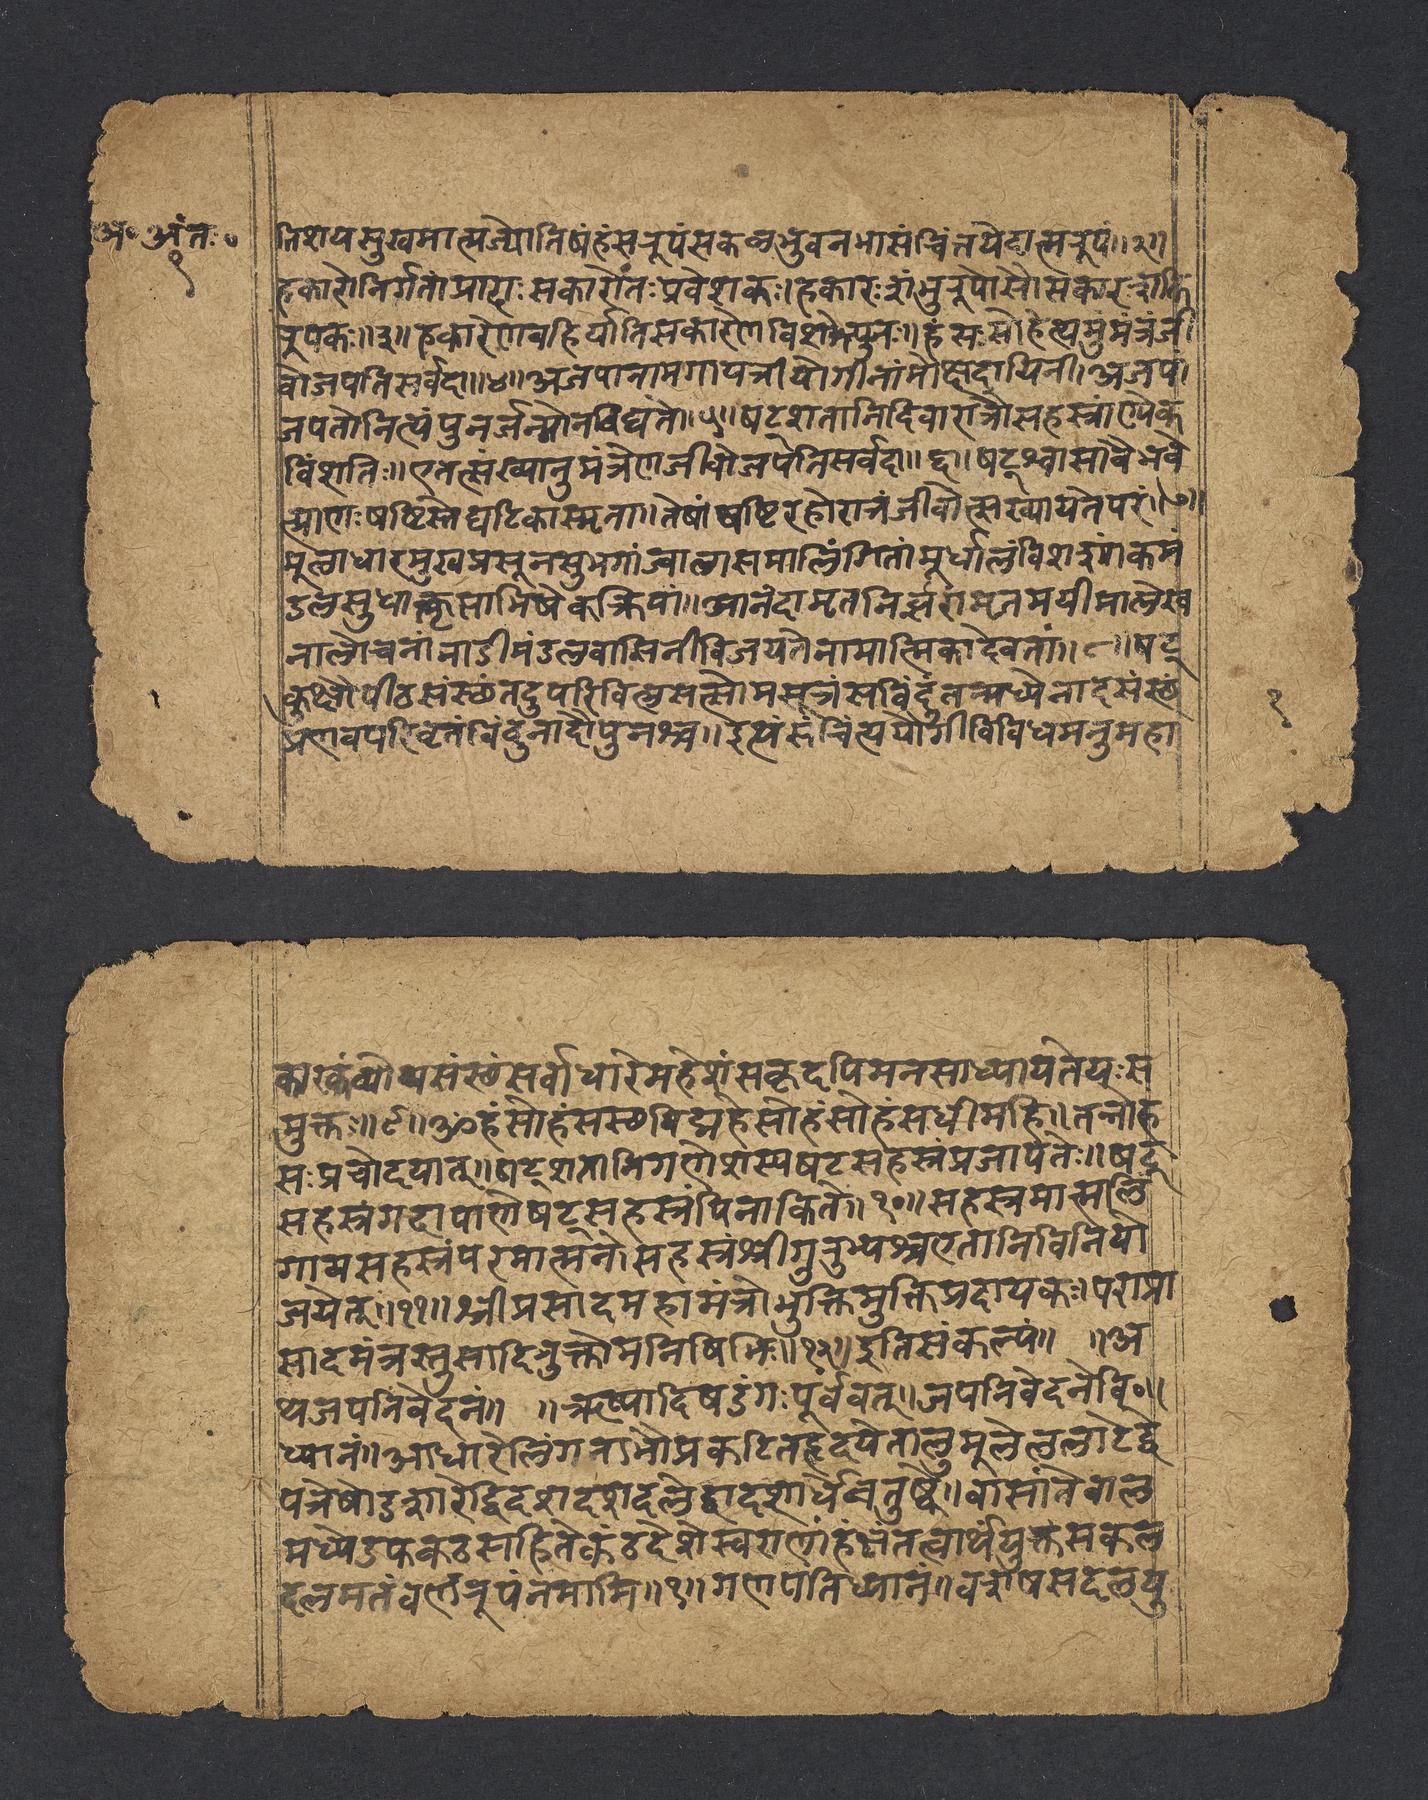 अ॰ अंत॰
१
तिशयसुखमात्मज्योतिषंहंसरूपंसकलभुवनभासंचिंतयेदात्मरूपं॥२॥
हकारोनिर्गतोप्राणःसकारोंतःप्रवेशकः।हकारःशंभुरूपोसौसकारःशक्ति
रूपकः॥३॥हकारेणबहिर्यातिसकारेणविशेत्पुनः॥हंसःसोहेत्यमुंमंत्रंजी
वोजपतिसर्वदा॥४॥अजपानामगायत्रीयोगीनांमोक्षदायिनी।अजपां
जपतोनित्यंपुनर्जन्मोनविद्यते॥५॥षट्शतानिदिवारात्रौसहस्त्रांण्येक
विंशतिः॥एतत्संख्यानुमंत्रेणजीवोजपतिसर्वदा॥६॥षट्श्वासोवैभवे
त्प्राणःषष्टिस्तेघटिकास्मृता॥तेषांषष्टिरहोरात्रंजीवोत्सख्यायतेपरं॥७॥
मूलाधारमुखप्रसूनसुभगांज्वालासमालिंगितांमूर्धालंविशशांकमं
डलसुधा सामिषेकक्रियां॥आनंदामृतनिर्झरामृतमयीमालेख
नालोचनांनाडीमंडलवासिनीविजयतेनामात्मिकादेवतां॥८॥षट्
कुक्षौपीठसंस्छंतदुपरिविलसत्सोमसूत्रंसबिंदुंतन्मध्येनादसंस्छं
प्रणवपरिवृतंबिंदुनादौपुनश्च॥इत्थंसंचिंत्ययोगीविविधमनुमहा
१
काष्ठंव्योध्यसंस्छंसर्वाधारेमहेशंसकृदपिमनसाध्यायतेयःस
मुक्तः॥९॥ॐहंसोहंसस्छविद्महेसोहंसोहंसधीमहि॥तन्नोहं
सःप्रचोदयात्॥षट्शतानिगणेशस्यषटसहस्त्रंप्रजापतेः॥षट्
सहस्त्रंगदापाणेषट्सहस्त्रंपिनाकिने॥१०॥सहस्त्रमात्मलिं
गायसहस्त्रंपरमात्मने।सहस्त्रंश्रीगुरुभ्यश्चएतानिविनियो
जयेत्॥११॥श्रीप्रसादमहामंत्रोभुक्तिमुक्तिप्रदायकः।पराप्रा
सादमंत्रस्तुसादिरुक्तोमनिषिभिः॥१२॥इतिसंकल्पं॥ ॥अ
थजपनिवेदनं॥ ॥ऋष्यादिषडंगःपूर्ववत्॥जपनिवेदनेवि॰॥
ध्यानं॥आधारेलिंगनाभौप्रकटितहृदयेतालुमूलेललाटेद्वे
पत्रेषोडशारेद्विदशदशदलेद्वादशार्धेचतुष्के॥वासांतेबाल
मध्येडफकठसहितेकंठदेशेस्वराणांहंक्षंतत्वार्थयुक्तसकल
दलमतंवर्णरूपंनमामि॥१॥गणपतिध्यानं॥वशषसदलयु